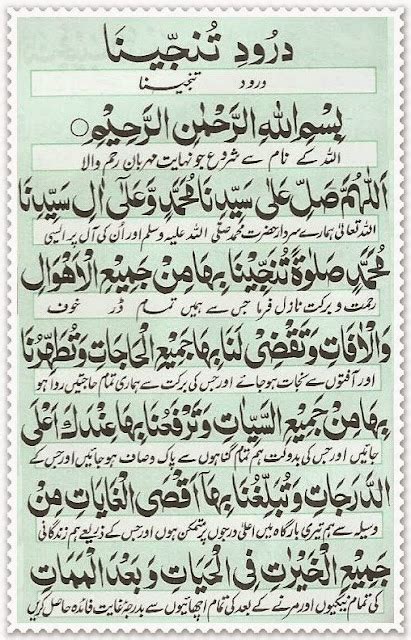 درودِ تُنجّينا
ورود تنجینا
بِسْمِ اللهِ الرَّحْمٰنِ الرَّحِيْمِ
اللہ کے نام سے شروع جو نہایت مہربان رحم والا
اَللّٰهُمَّ صَلِّ عَلٰى سَيِّدِنَا مُحَمَّدٍ وَّعَلٰٓى اٰلِ سَيِّدِنَا
اللہ تعالیٰ ہمارے سردار حضرت محمد صلی اللہ علیہ وسلم اور اُن کی آل پر ایسی
مُحَمَّدٍ صَلٰوةً تُنَجِّيْنَا بِهَا مِنْ جَمِيْعِ الْاَهْوَالِ
رحمت و برکت نازل فرما جس سے ہمیں تمام ڈر خوف
وَالْاٰفَاتِ وَتَقْضِىْ لَنَا بِهَا جَمِيْعَ الْحَاجَاتِ وَتُطَهِّرُنَا
اور آفتوں سے نجات ہو جائے اور جس کی برکت سے ہماری تمام حاجتیں روا ہو
بِهَا مِنْ جَمِيْعِ السَّيِّاٰتِ وَتَرْفَعُنَا بِهَا عِنْدَكَ اَعْلَى
جائیں اور جس کی بدولت ہم تمام گناہوں سے پاک و صاف ہو جائیں اور جس کے
الدَّرَجَاتِ وَتُبَلِّغُنَا بِهَآ اَقْصَى الْغَايَاتِ مِنْ
وسیلہ سے ہم تیری بارگاہ میں اعلیٰ درجوں پر متمکن ہوں اور جس کے ذریعے ہم زندگانی
جَمِيْعِ الْخَيْرٰتِ فِى الْحَيَاتِ وَبَعْدَ الْمَمَاتِ
کی تمام نیکیوں اور مرنے کے بعد کی تمام اچھائیوں سے بدرجہ غایت فائدہ حاصل کریں